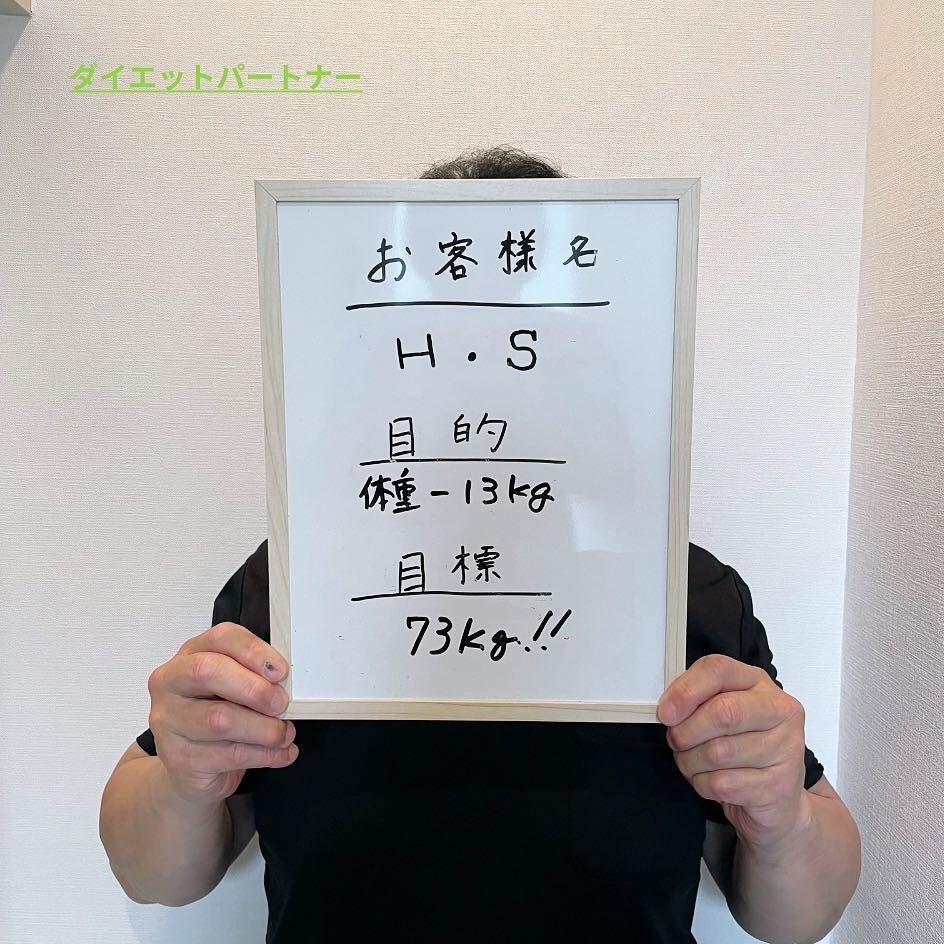 ダイエットパートナー
お客様名
H・S
目的
体重-13kg
目標
73kg!!